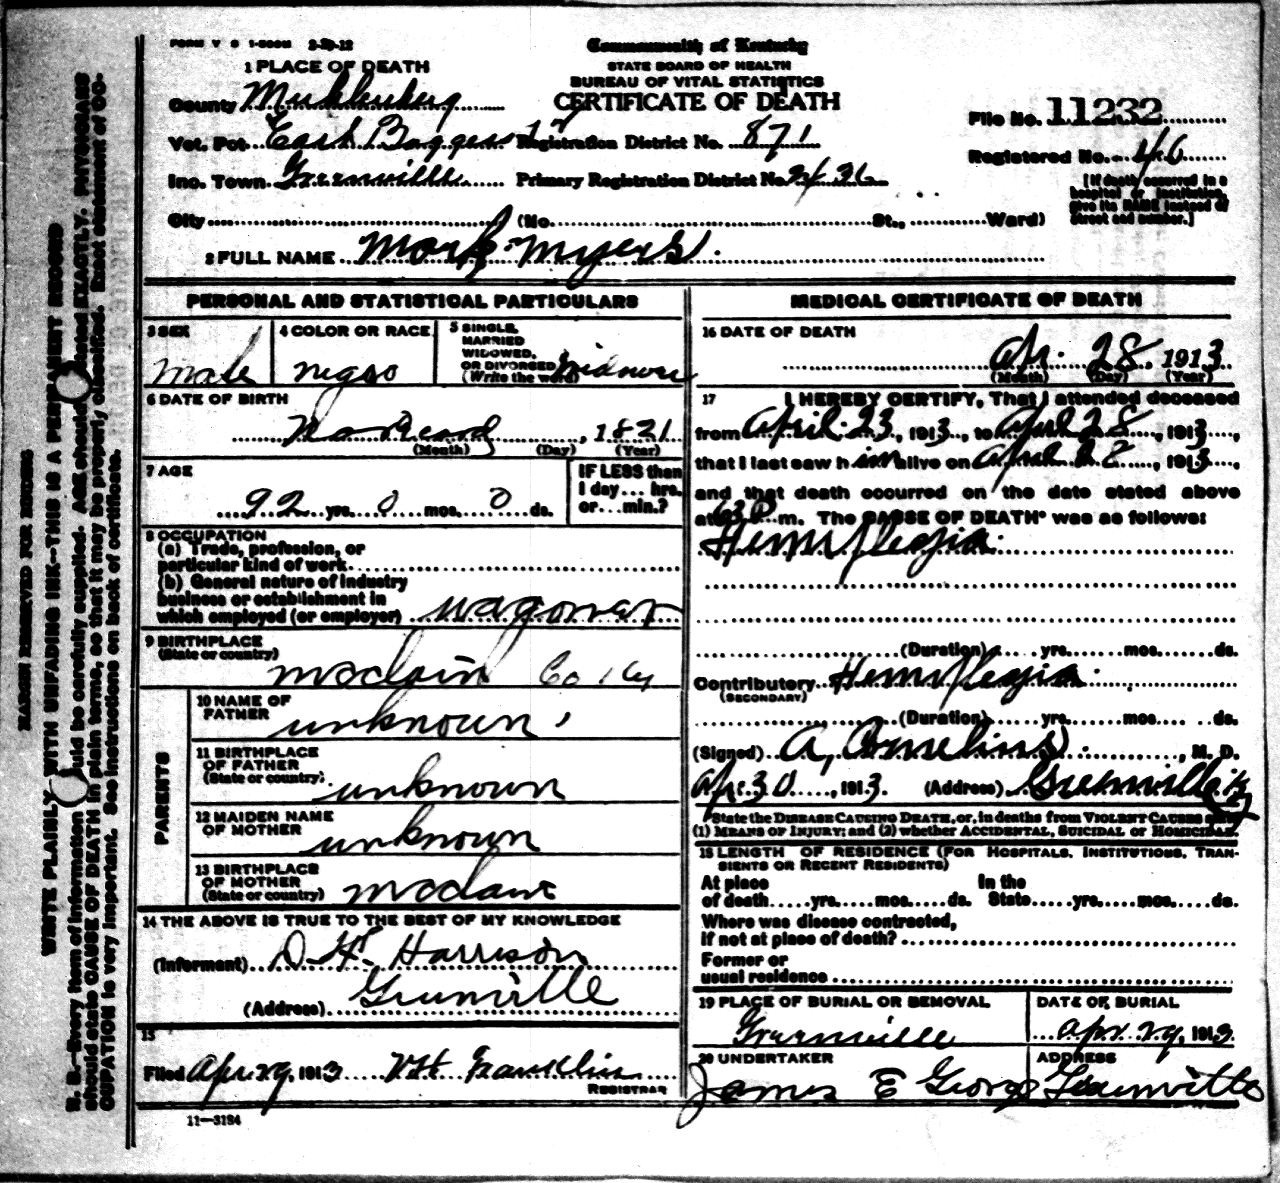 FORM V S 1-500M 2-20-12
Commonwealth of Kentucky
STATE BOARD OF HEALTH
BUREAU OF VITAL STATISTICS
CERTIFICATE OF DEATH
1 PLACE OF DEATH
County Muhlenberg
Vot. Pct. East
Registration District No. 871
Inc. Town Greenville
Primary Registration District No. 2426
City (No. St., Ward)
File No. 11232
Registered No. 46
[If death occurred in a
hospital or institution,
give its NAME instead of
street and number.]
2 FULL NAME Mark Myers
PERSONAL AND STATISTICAL PARTICULARS
3 SEX
male
4 COLOR OR RACE
negro
5 SINGLE,
MARRIED
WIDOWED,
OR DIVORCED
(Write the word)
6 DATE OF BIRTH
No Record, 1821
(Month) (Day) (Year)
7 AGE
92 yrs. 0 mos. 0 ds.
IF LESS than
1 day... hrs.
or...min.?
8 OCCUPATION
(a) Trade, profession, or
particular kind of work
(b) General nature of industry
business or establishment in
which employed (or employer)
9 BIRTHPLACE
(State or country)
McClain Co Ky
PARENTS
10 NAME OF
FATHER
unknown
11 BIRTHPLACE
OF FATHER
(State or country)
unknown
12 MAIDEN NAME
OF MOTHER
unknown
13 BIRTHPLACE
OF MOTHER
(State or country)
14 THE ABOVE IS TRUE TO THE BEST OF MY KNOWLEDGE
(Informant) Harrison
(Address) Greenville
15
Filed Apr. 29, 1913 Franklin
REGISTRAR
11-3184
MEDICAL CERTIFICATE OF DEATH
16 DATE OF DEATH
Apr. 28, 1913
(Month) (Day) (Year)
17 I HEREBY CERTIFY, That I attended deceased
from April 23, 1913, to April 28, 1913,
that I last saw him alive on April 28, 1913,
and that death occurred on the date stated above
at P m. The CAUSE OF DEATH* was as follows:
Hemiplegia
(Duration) yrs. mos. ds.
Contributory Hemiplegia
(SECONDARY)
(Duration) yrs. mos. ds.
(Signed) Cornelius, M. D.
Apr. 30, 1913 (Address) Greenville Ky
*State the DISEASE CAUSING DEATH, or, in deaths from VIOLENT CAUSES state
(1) MEANS OF INJURY; and (2) whether ACCIDENTAL, SUICIDAL or HOMICIDAL.
18 LENGTH OF RESIDENCE (FOR HOSPITALS, INSTITUTIONS, TRAN-
SIENTS OR RECENT RESIDENTS)
At place In the
of death yrs. mos. ds. State yrs. mos. ds.
Where was disease contracted,
if not at place of death?
Former or
usual residence
19 PLACE OF BURIAL OR REMOVAL
Greenville
DATE OF BURIAL
Apr. 29, 1913
20 UNDERTAKER
James E George
ADDRESS
Greenville
MARGIN RESERVED FOR BINDING
WRITE PLAINLY WITH UNFADING INK—THIS IS A PERMANENT RECORD
N. B.—Every item of information should be carefully supplied. AGE should be stated EXACTLY. PHYSICIANS
should state CAUSE OF DEATH in plain terms, so that it may be properly classified. Exact statement of OC-
CUPATION is very important. See instructions on back of certificate.